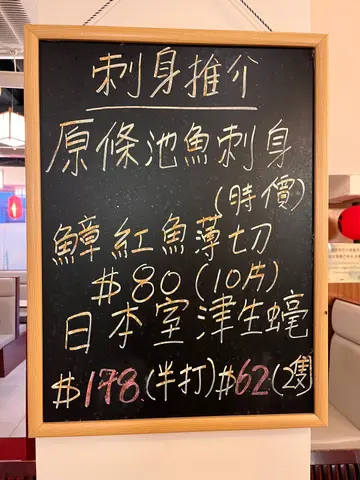 刺身推介
原條池魚刺身
(時價)
鱆紅魚薄切
$80(10片)
日本室津生蠔
$178(半打)$62(2隻)